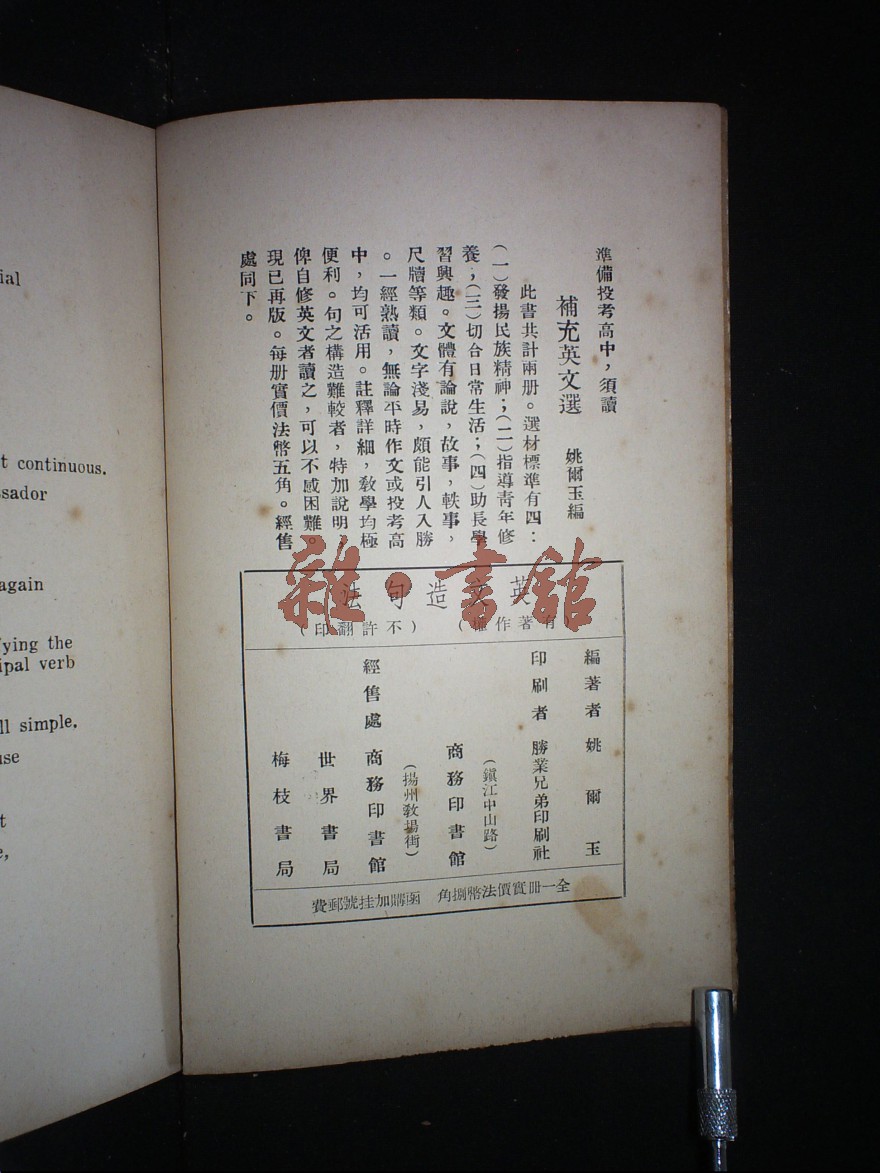 ial
t continuous.
ssador
again
ying the
ipal verb
ll simple.
use
t
e,
準備投考高中，須讀
補充英文選　姚爾玉編
此書共計兩册。選材標準有四：
(一)發揚民族精神；(二)指導靑年修
養；(三)切合日常生活；(四)助長學
習興趣。文體有論說，故事，軼事，
尺牘等類。文字淺易，頗能引人入勝
。一經熟讀，無論平時作文或投考高
中，均可活用。註釋詳細，敎學均極
便利。句之構造難較者，特加說明，
俾自修英文者讀之，可以不感困難。
現已再版。每册實價法幣五角。經售
處同下。
英文造句法
(有著作權)(不許翻印)
編著者　姚爾玉
印刷者　勝業兄弟印刷社
(鎭江中山路)
商務印書館
(揚州敎場街)
經售處　商務印書館
世界書局
梅枝書局
全一冊實價法幣捌角　函購加挂號郵費
雜·書館